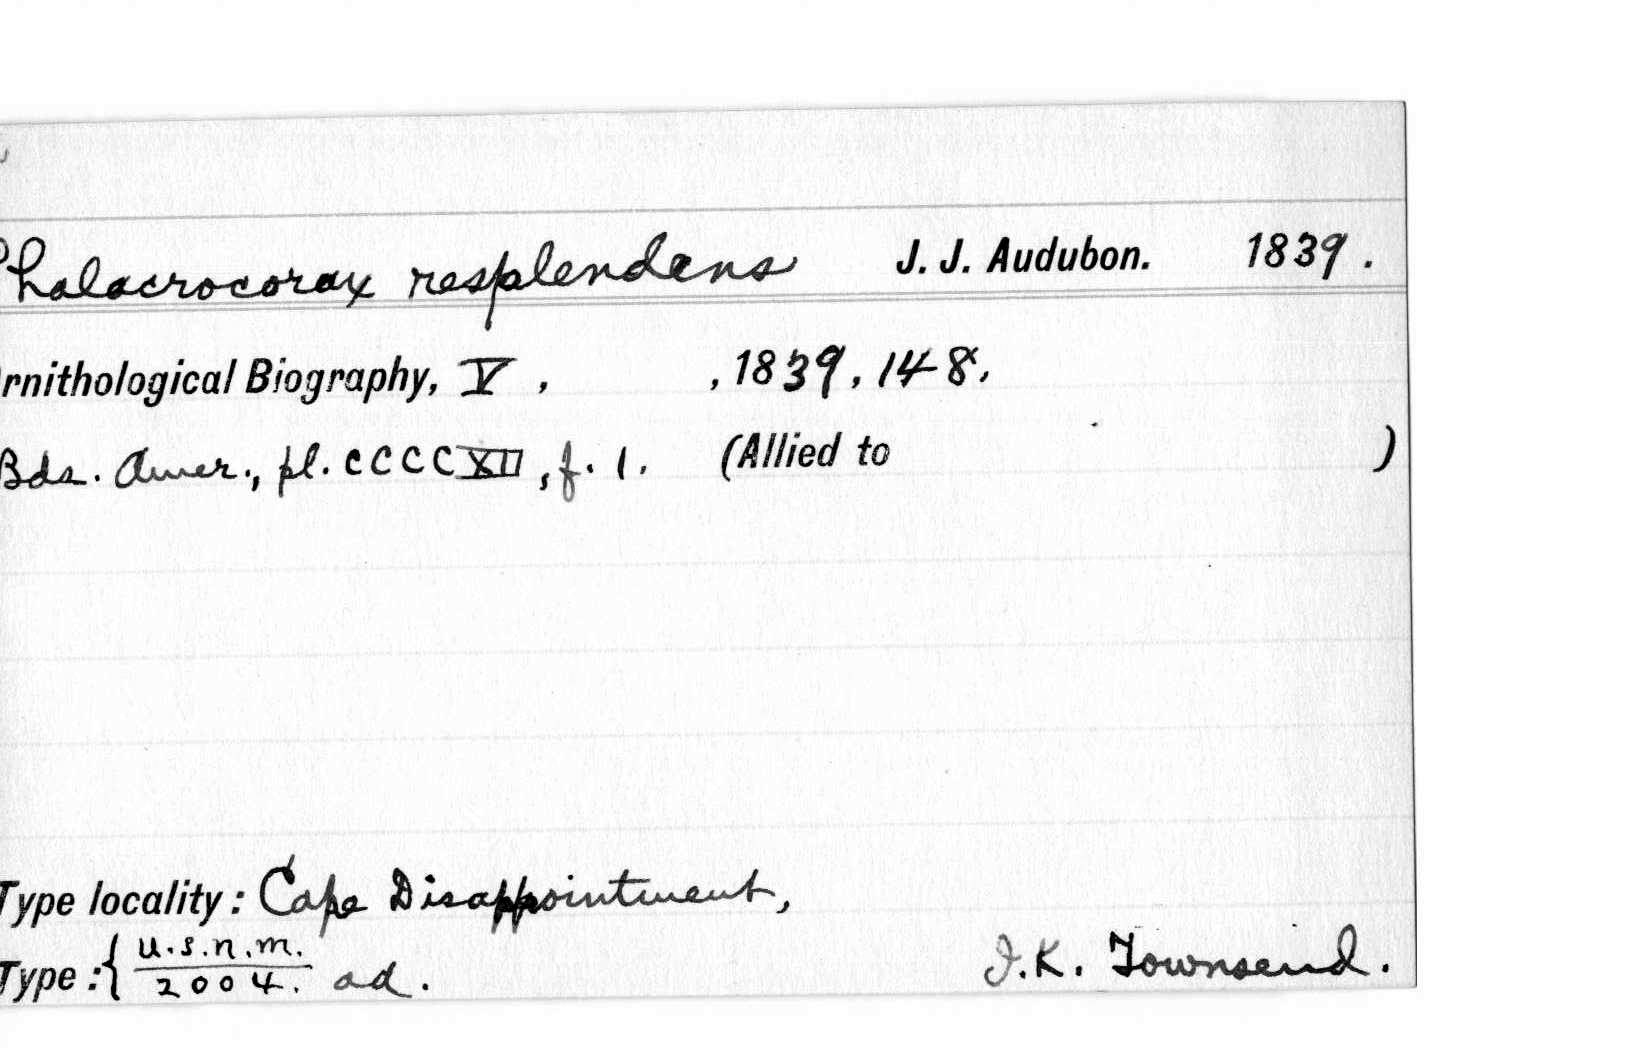 Phalacrocorax resplendens J. J. Audubon. 1839.
rnithological Biography, V , , 1839, 148,
Bds. Amer., pl. CCCCXII, f. 1. (Allied to )
Type locality: Cape Disappointment,
Type: { U.S.N.M. ad. J.K. Townsend.
2004.